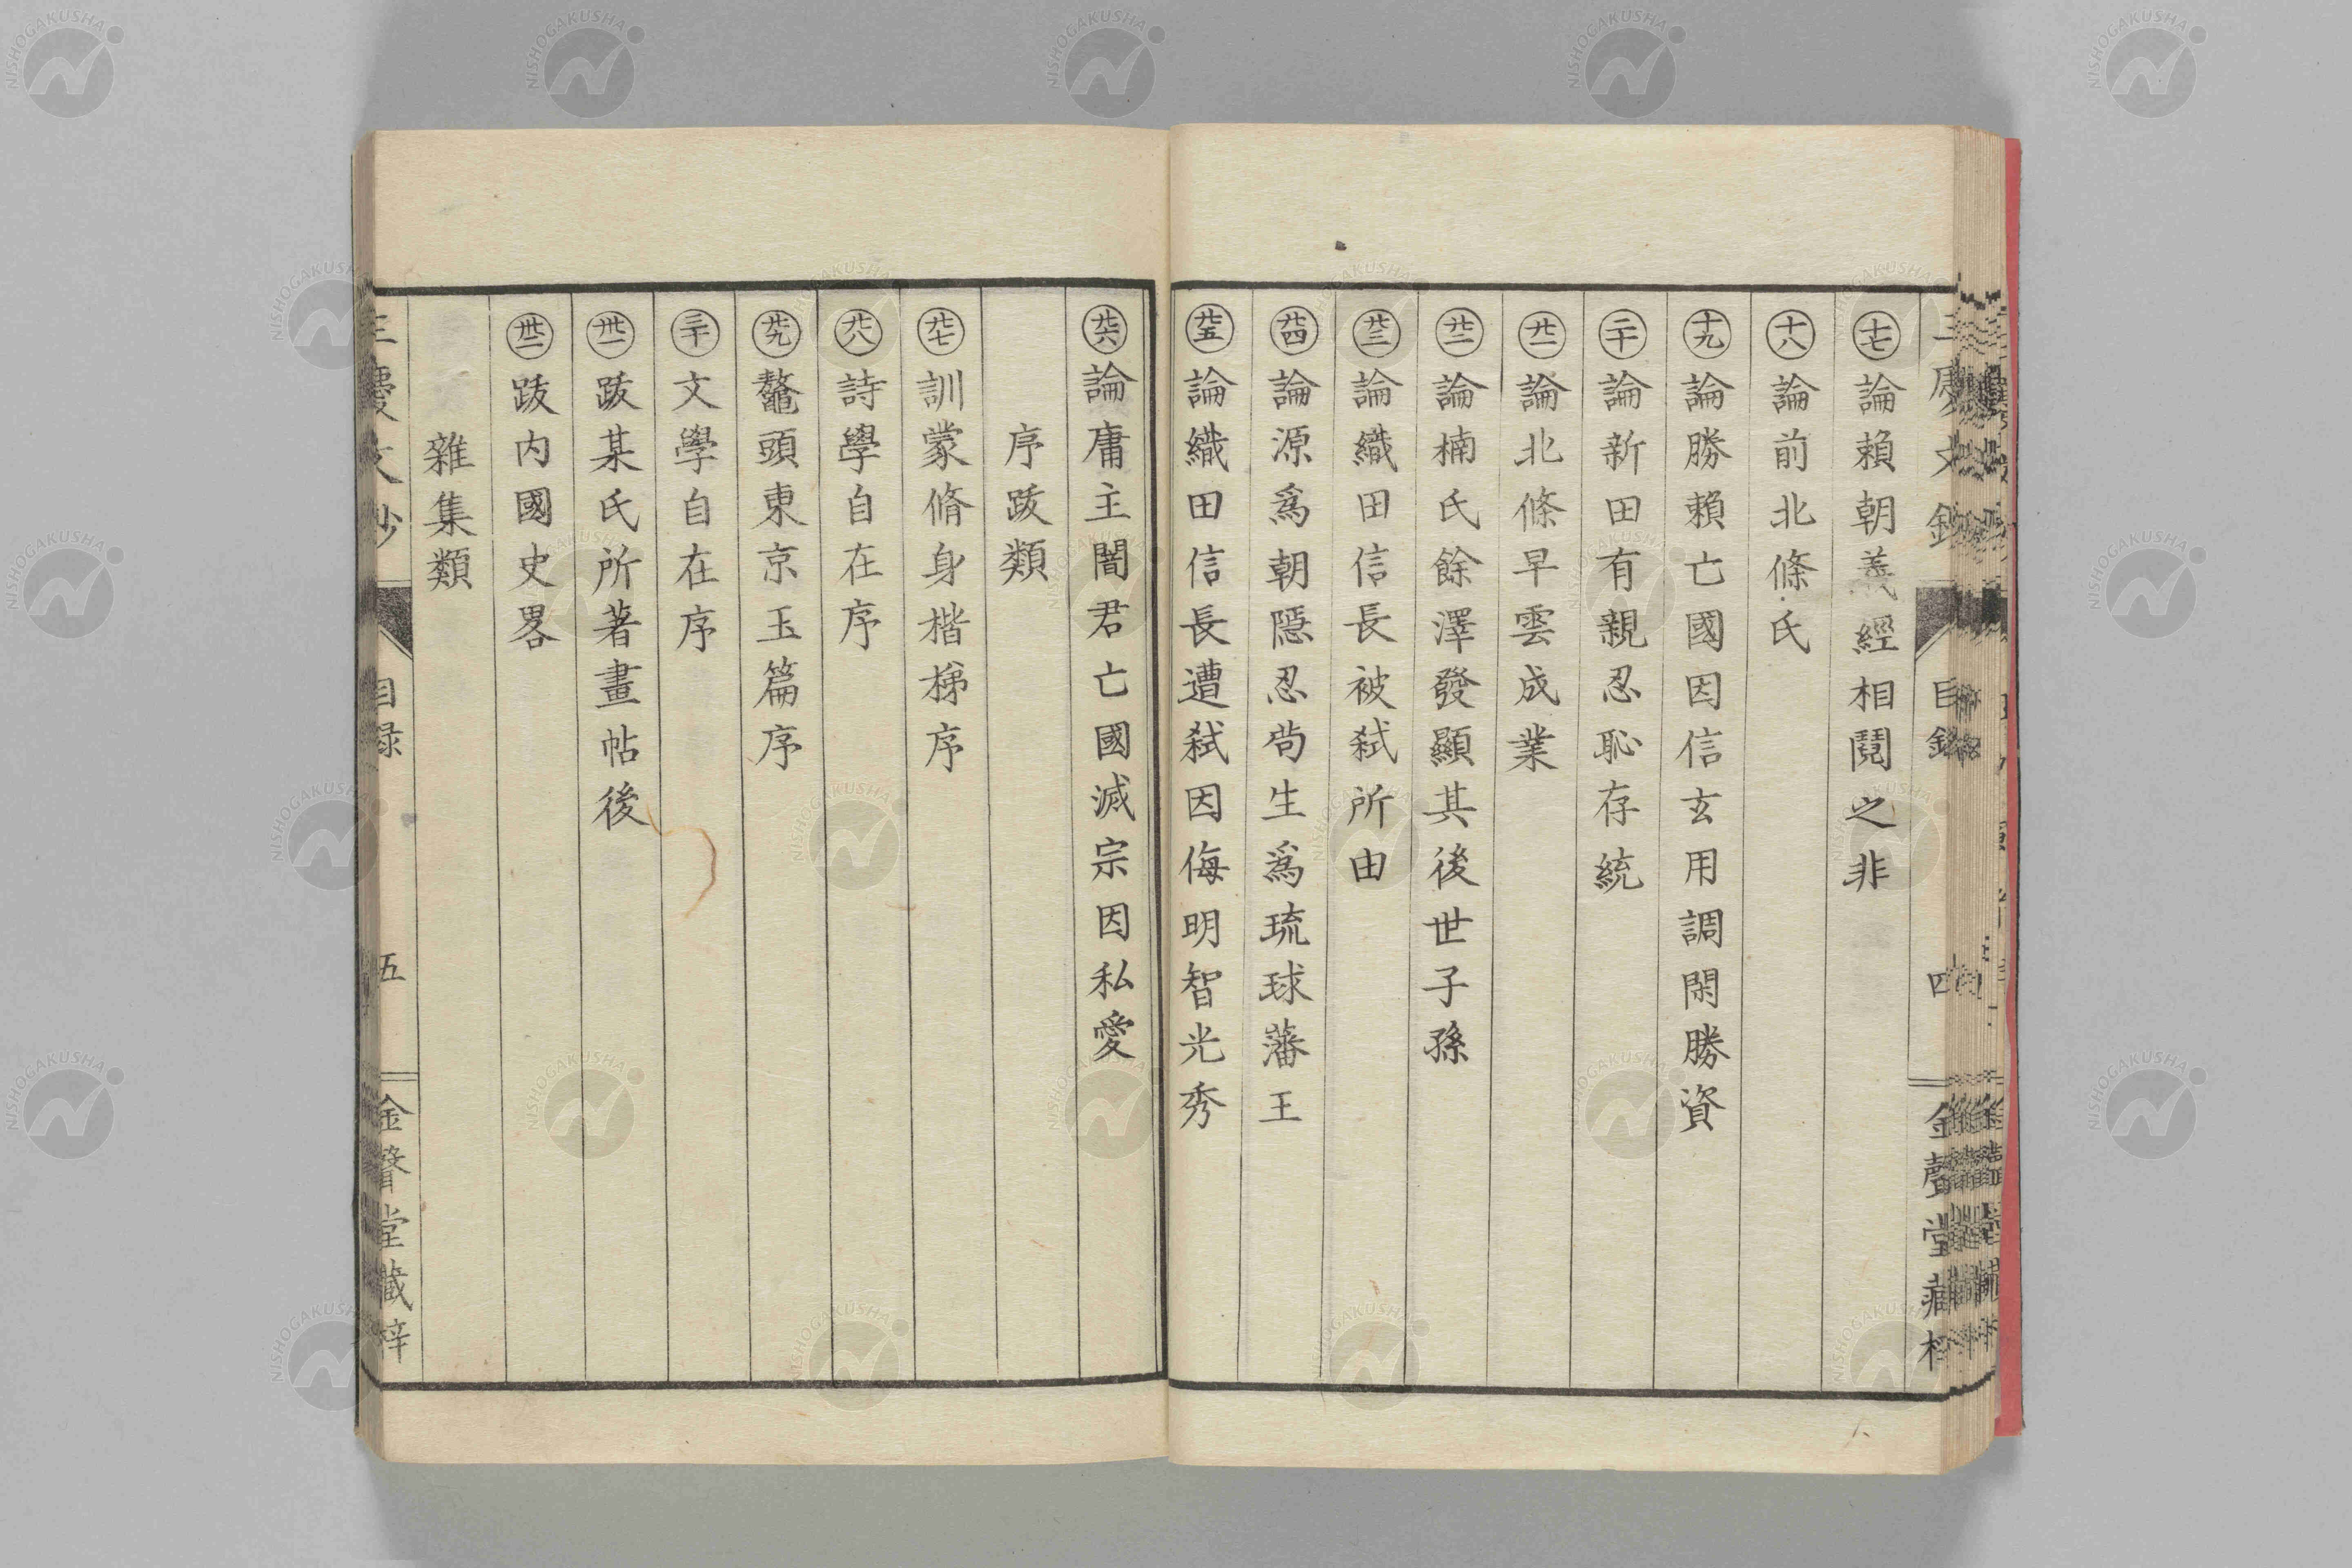 ㊉七論賴朝義經相鬩之非
十八論前北條氏
十九論勝賴亡國因信玄用調閑勝資
二十論新田有親忍恥存統
廿一論北條早雲成業
廿二論楠氏餘澤發顯其後世子孫
廿三論織田信長被弑所由
廿四論源爲朝隱忍尚生爲琉球藩王
廿五論織田信長遭弑因侮明智光秀
目錄
四
金聲堂藏梓
廿六論庸主闇君亡國滅宗因私愛
序跋類
廿七訓蒙脩身楷梯序
廿八詩學自在序
廿九鼇頭東京玉篇序
三十文學自在序
卅一跋某氏所著畫帖後
卅二跋内國史畧
雜集類
三慶文鈔
目録
五
金聲堂藏梓
NISHOGAKUSHA